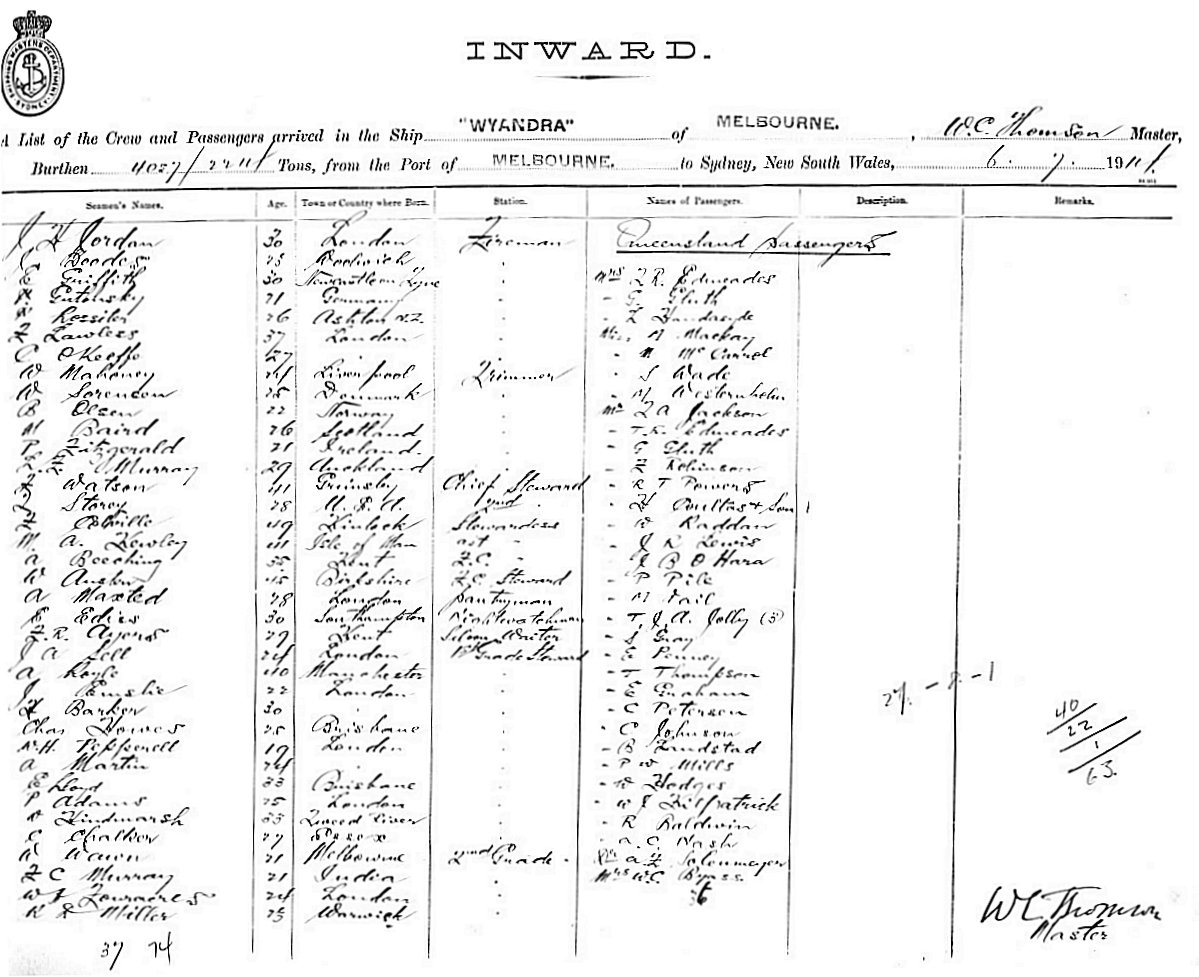 SHIPPING MASTERS DEPARTMENT SYDNEY
INWARD.
A List of the Crew and Passengers arrived in the Ship "WYANDRA" of MELBOURNE. , W.C. Thomson Master,
Burthen 4057/ Tons, from the Port of MELBOURNE. to Sydney, New South Wales, 6. 7. 191
Seamen's Names. Age. Town or Country where Born. Station. Names of Passengers. Description. Remarks.
J H Jordan 30 London Fireman Queensland passengers
25 Woolwich
E Griffith 30 Newcastle on Tyne Mrs F R. Edmeades
Gutowsky 21 Germany " G. Gluth
Rossiter 26 Ashton N.Z. "
F Lawless 37 London Miss A Mackay
C OKeeffe 27 "
W Mahoney 24 Liverpool Trimmer " S Wade
W Sorensen 25 Denmark " M Westernhelm
B Olsen 22 Norway Mr F A Jackson
M Baird 26 Scotland " Edmeades
P Fitzgerald 21 Ireland. " G Gluth
Murray 29 Auckland " F Robinson
F Watson 41 Grimsby Chief Steward " R T Powers
Storey 28 U.S.A. 2nd " " + Son 1
49 Kinlock Stewardess " W Raddan
M. A. Kewley 44 Isle of Man " " J R Lewis
A Beeching 35 Kent F.C. " " J B O Hara
W Austin 45 F.C. Steward " P Pile
A Maxted 28 London pantryman " M Vail
E Edies 30 Southampton Nightwatchman " T. J. A. Jolly (3)
F. R. Ayers 29 Kent Saloon Waiter " S Gray
J A Sell 24 London Grade Steward " E Penney
A 40 Manchester " " T Thompson
J Emslie 22 London " " E Graham
Barker 30 " " " C Petersen
Chas Howes 25 Brisbane " " C Johnson
W.H. Pepperell 19 London " " B Landstad
A Martin 24 " " " P W Mills
E Lloyd 33 Brisbane " " W Hodges
P Adams 25 London " " W J Kilpatrick
Hindmarsh 33 Tweed River " " R Baldwin
E Chalker 27 Essex " " A. C. Nash
W Wawn 21 Melbourne 2nd Grade " A F Solenmeyer
F C Murray 21 India " Mrs W.C. Byass.
W J 24 London "
R L Miller 25 Warwick "
37 74
27. - 8. - 1
40
22
1
63.
W C Thomson
Master